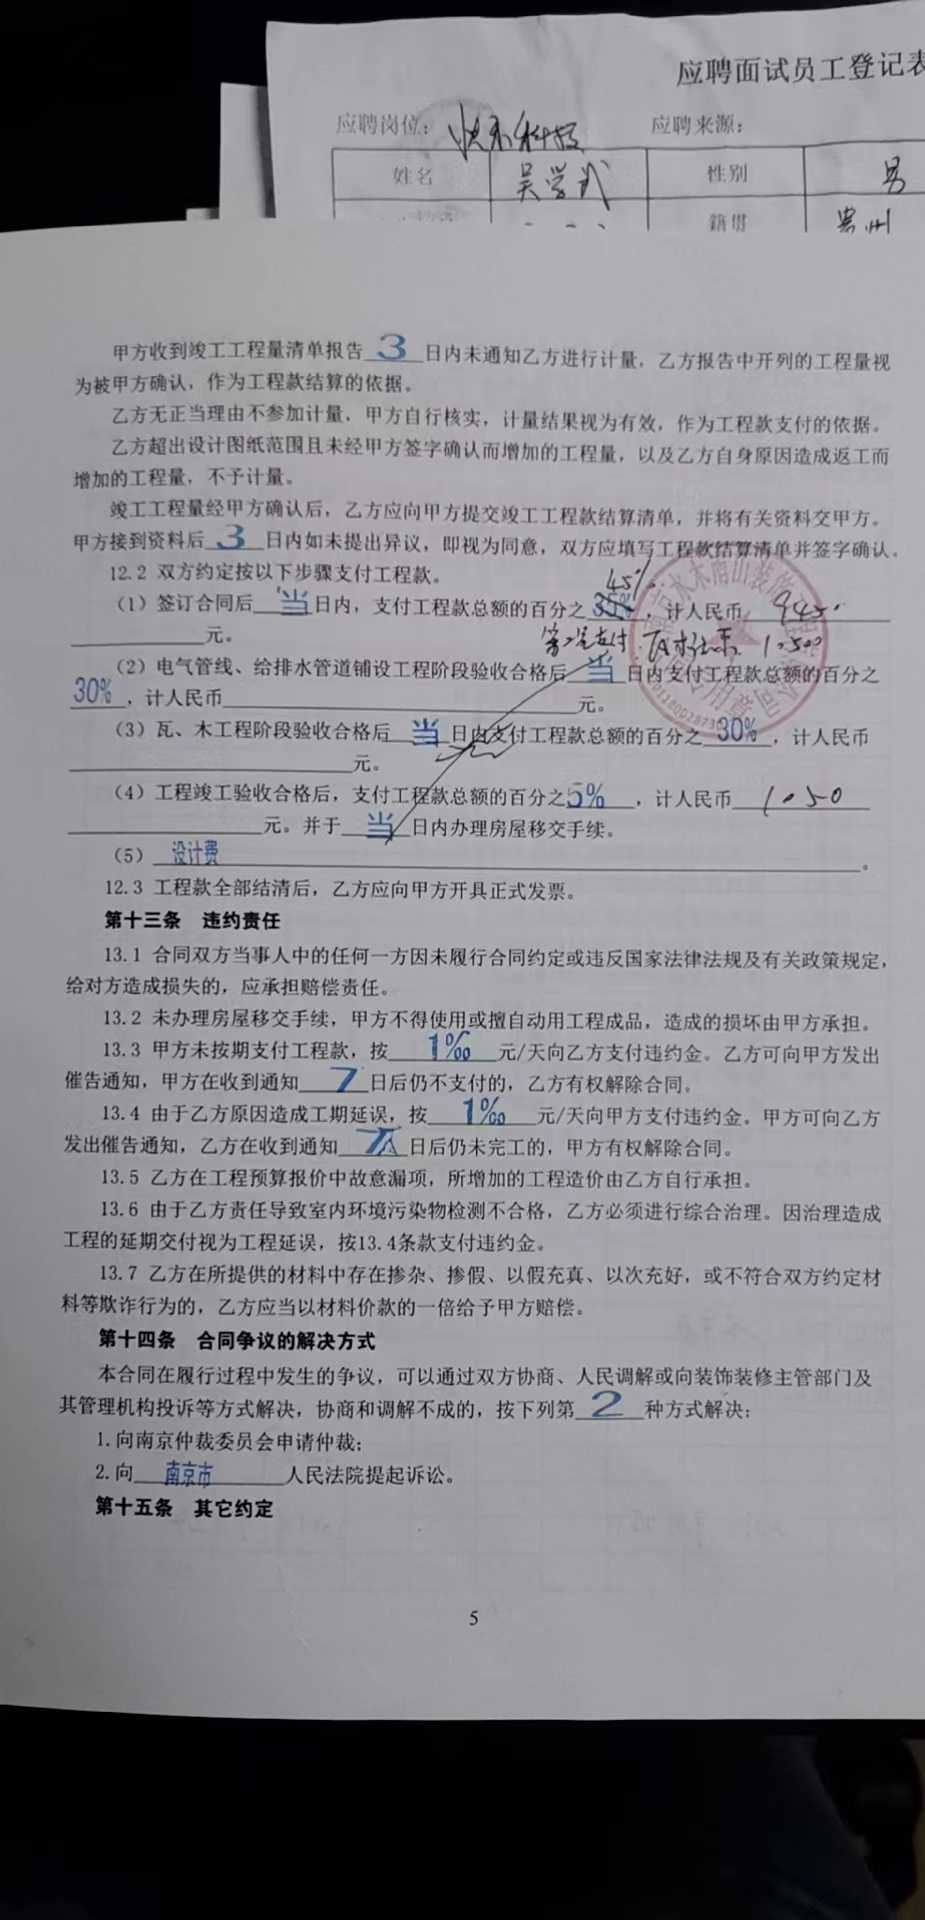 应聘面试员工登记表
应聘岗位： 科技 应聘来源：
姓名 吴学武 性别 男
籍贯 贵州
甲方收到竣工工程量清单报告 3 日内未通知乙方进行计量，乙方报告中开列的工程量视
为被甲方确认，作为工程款结算的依据。
乙方无正当理由不参加计量，甲方自行核实，计量结果视为有效，作为工程款支付的依据。
乙方超出设计图纸范围且未经甲方签字确认而增加的工程量，以及乙方自身原因造成返工而
增加的工程量，不予计量。
竣工工程量经甲方确认后，乙方应向甲方提交竣工工程款结算清单，并将有关资料交甲方。
甲方接到资料后 3 日内如未提出异议，即视为同意，双方应填写工程款结算清单并签字确认。
12.2 双方约定按以下步骤支付工程款。
45%
（1）签订合同后 当 日内，支付工程款总额的百分之 35% ，计人民币 9450
元。
支付 10500
（2）电气管线、给排水管道铺设工程阶段验收合格后 当 日内支付工程款总额的百分之
30% ，计人民币 元。
（3）瓦、木工程阶段验收合格后 当 日内支付工程款总额的百分之 30% ，计人民币
元。
（4）工程竣工验收合格后，支付工程款总额的百分之 5% ，计人民币 1050
元。并于 当 日内办理房屋移交手续。
（5） 设计费 。
12.3 工程款全部结清后，乙方应向甲方开具正式发票。
第十三条 违约责任
13.1 合同双方当事人中的任何一方因未履行合同约定或违反国家法律法规及有关政策规定，
给对方造成损失的，应承担赔偿责任。
13.2 未办理房屋移交手续，甲方不得使用或擅自动用工程成品，造成的损坏由甲方承担。
13.3 甲方未按期支付工程款，按 1‰ 元/天向乙方支付违约金。乙方可向甲方发出
催告通知，甲方在收到通知 7 日后仍不支付的，乙方有权解除合同。
13.4 由于乙方原因造成工期延误，按 1‰ 元/天向甲方支付违约金。甲方可向乙方
发出催告通知，乙方在收到通知 7 日后仍未完工的，甲方有权解除合同。
13.5 乙方在工程预算报价中故意漏项，所增加的工程造价由乙方自行承担。
13.6 由于乙方责任导致室内环境污染物检测不合格，乙方必须进行综合治理。因治理造成
工程的延期交付视为工程延误，按13.4条款支付违约金。
13.7 乙方在所提供的材料中存在掺杂、掺假、以假充真、以次充好，或不符合双方约定材
料等欺诈行为的，乙方应当以材料价款的一倍给予甲方赔偿。
第十四条 合同争议的解决方式
本合同在履行过程中发生的争议，可以通过双方协商、人民调解或向装饰装修主管部门及
其管理机构投诉等方式解决，协商和调解不成的，按下列第 2 种方式解决：
1.向南京仲裁委员会申请仲裁；
2.向 南京市 人民法院提起诉讼。
第十五条 其它约定
5